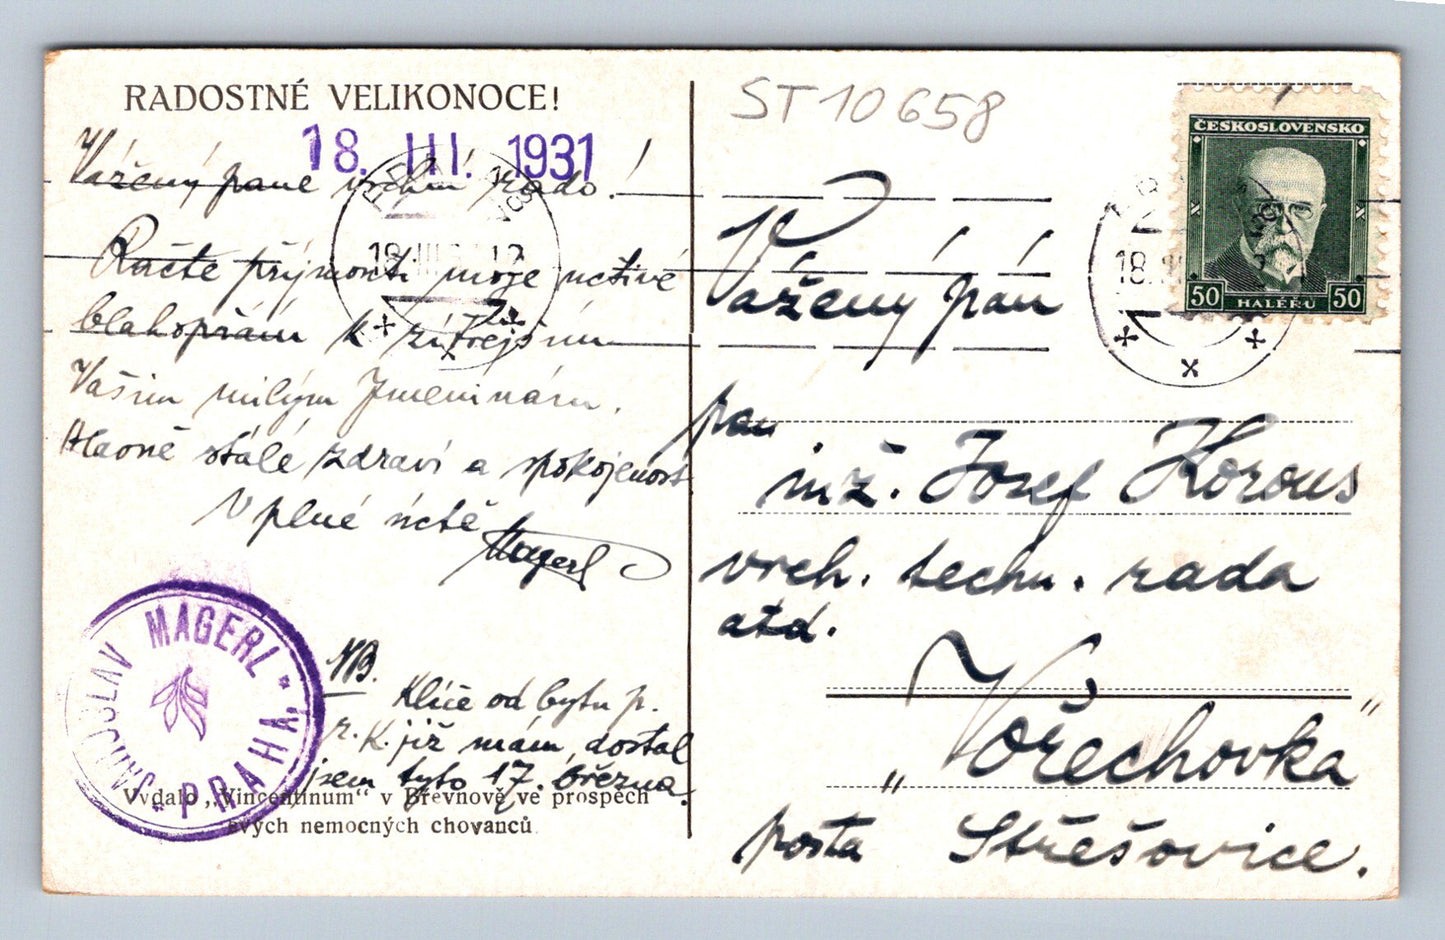 RADOSTNÉ VELIKONOCE!
18. III. 1931
Vážený pane vrchní rado!
Račte přijmouti moje uctivé
blahopřání k zítřejším
Vašim milým Jmeninám.
Hlavně stálé zdraví a spokojenost
V plné úctě
Magerl
JAROSLAV MAGERL * PRAHA *
NB.
Klíče od bytu p.
r. K. již mám, dostal
jsem tyto 17. března.
Vydalo „Vincentinum“ v Břevnově ve prospěch
svých nemocných chovanců
ST 10658
ČESKOSLOVENSKO
50 HALÉŘŮ 50
18.III
Vážený pán
pan
inž. Josef Korous
vrch. techn. rada
atd.
„Vořechovka“
pošta Střešovice.